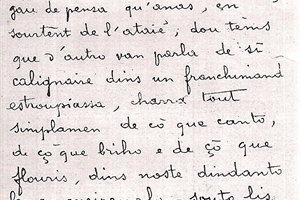 gau de pensa qu'anas, en
sourtent de l'ataié, dou tèms
que d'autro van parla de si
calignaire dins un franchimand
estroupiassa, charra tout
simplamen de cò que canto,
de çò que briho e de çò que
flouris, dins noste dindanto